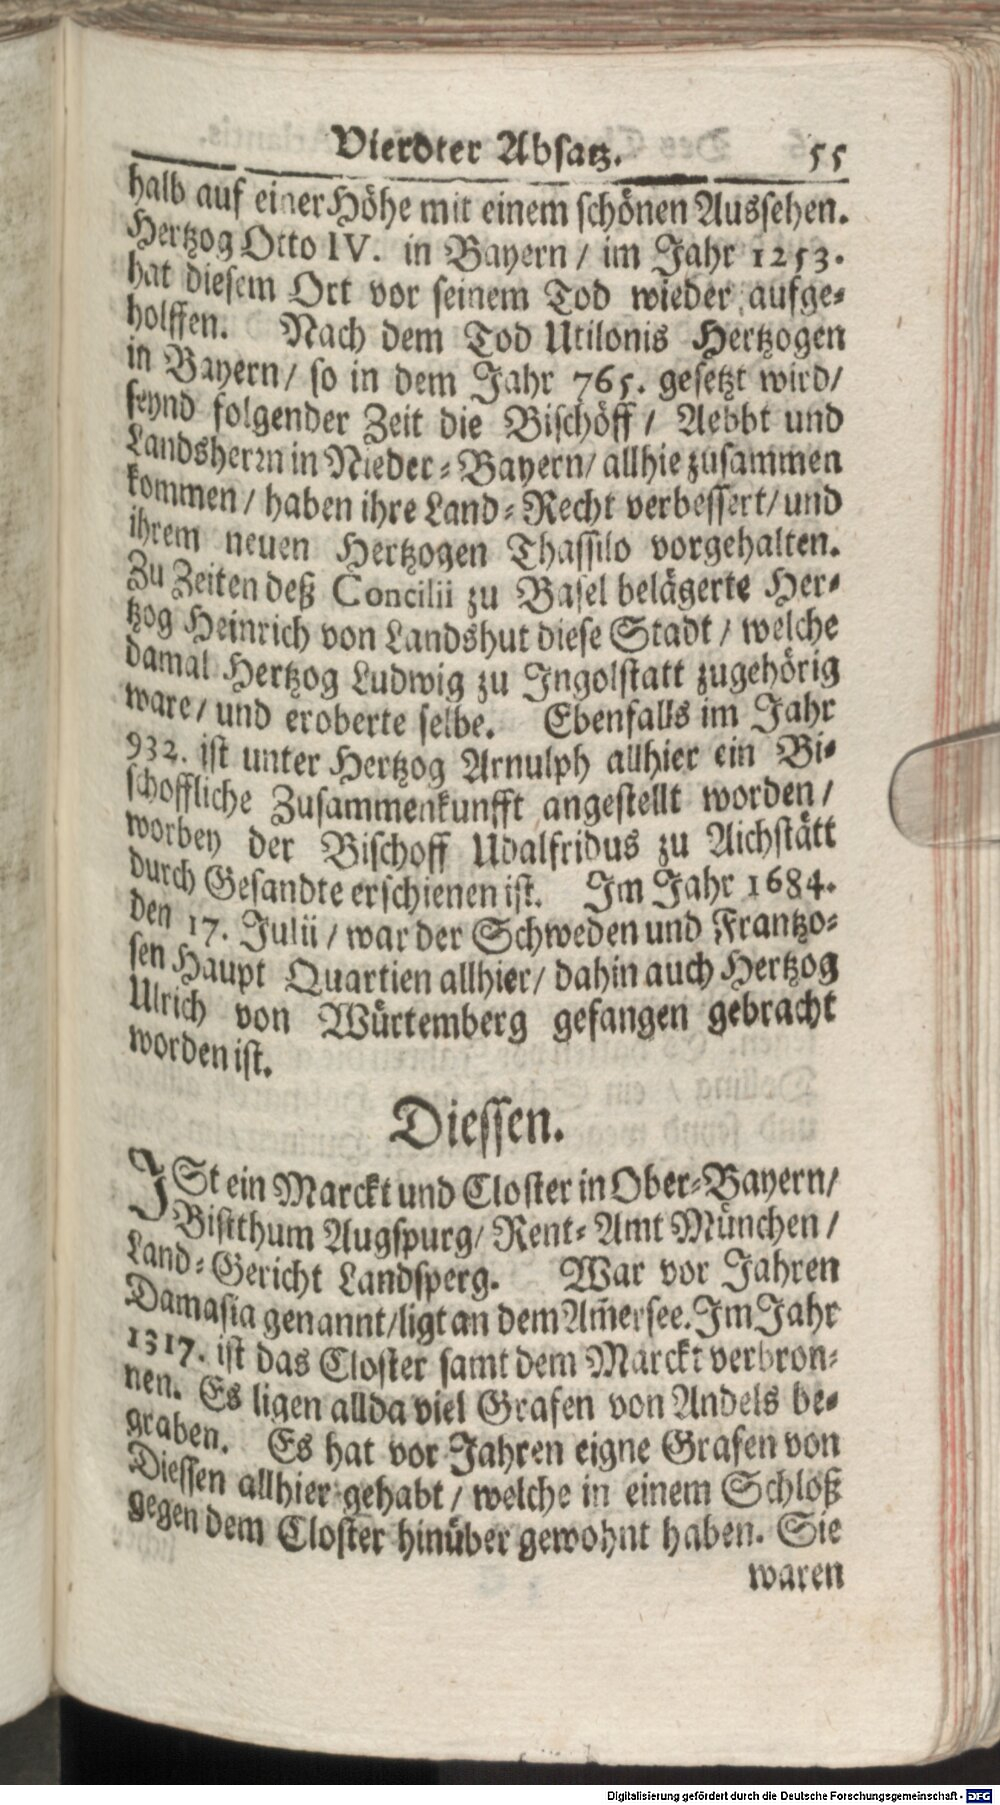 Vierdter Absatz. 55
halb auf einer Höhe mit einem schönen Aussehen.
Hertzog Otto IV. in Bayern / im Jahr 1253.
hat diesem Ort vor seinem Tod wieder aufge-
holffen. Nach dem Tod Utilonis Hertzogen
in Bayern / so in dem Jahr 765. gesetzt wird /
seynd folgender Zeit die Bischöff / Aebbt und
Landsherrn in Nieder-Bayern / allhie zusammen
kommen / haben ihre Land-Recht verbessert / und
ihrem neuen Hertzogen Thassilo vorgehalten.
Zu Zeiten deß Concilii zu Basel belägerte Her-
tzog Heinrich von Landshut diese Stadt / welche
damal Hertzog Ludwig zu Ingolstatt zugehörig
ware / und eroberte selbe. Ebenfalls im Jahr
932. ist unter Hertzog Arnulph allhier ein Bi-
schoffliche Zusammenkunfft angestellt worden /
worbey der Bischoff Udalfridus zu Aichstätt
durch Gesandte erschienen ist. Im Jahr 1684.
den 17. Julii / war der Schweden und Frantzo-
sen Haupt Quartien allhier / dahin auch Hertzog
Ulrich von Würtemberg gefangen gebracht
worden ist.
Diessen.
ISt ein Marckt und Closter in Ober-Bayern /
Bistthum Augspurg / Rent-Amt München /
Land-Gericht Landsperg. War vor Jahren
Damasia genannt / ligt an dem Am̃ersee. Im Jahr
1317. ist das Closter samt dem Marckt verbron-
nen. Es ligen allda viel Grafen von Andels be-
graben. Es hat vor Jahren eigne Grafen von
Diessen allhier gehabt / welche in einem Schloß
gegen dem Closter hinüber gewohnt haben. Sie
waren
Digitalisierung gefördert durch die Deutsche Forschungsgemeinschaft - DFG